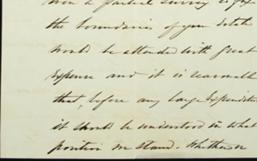 over a partial survey
the boundaries of your estate
would be attended with great
expense and it is
that, before any large expenditure
it should be understood in what
position we stand. Whether